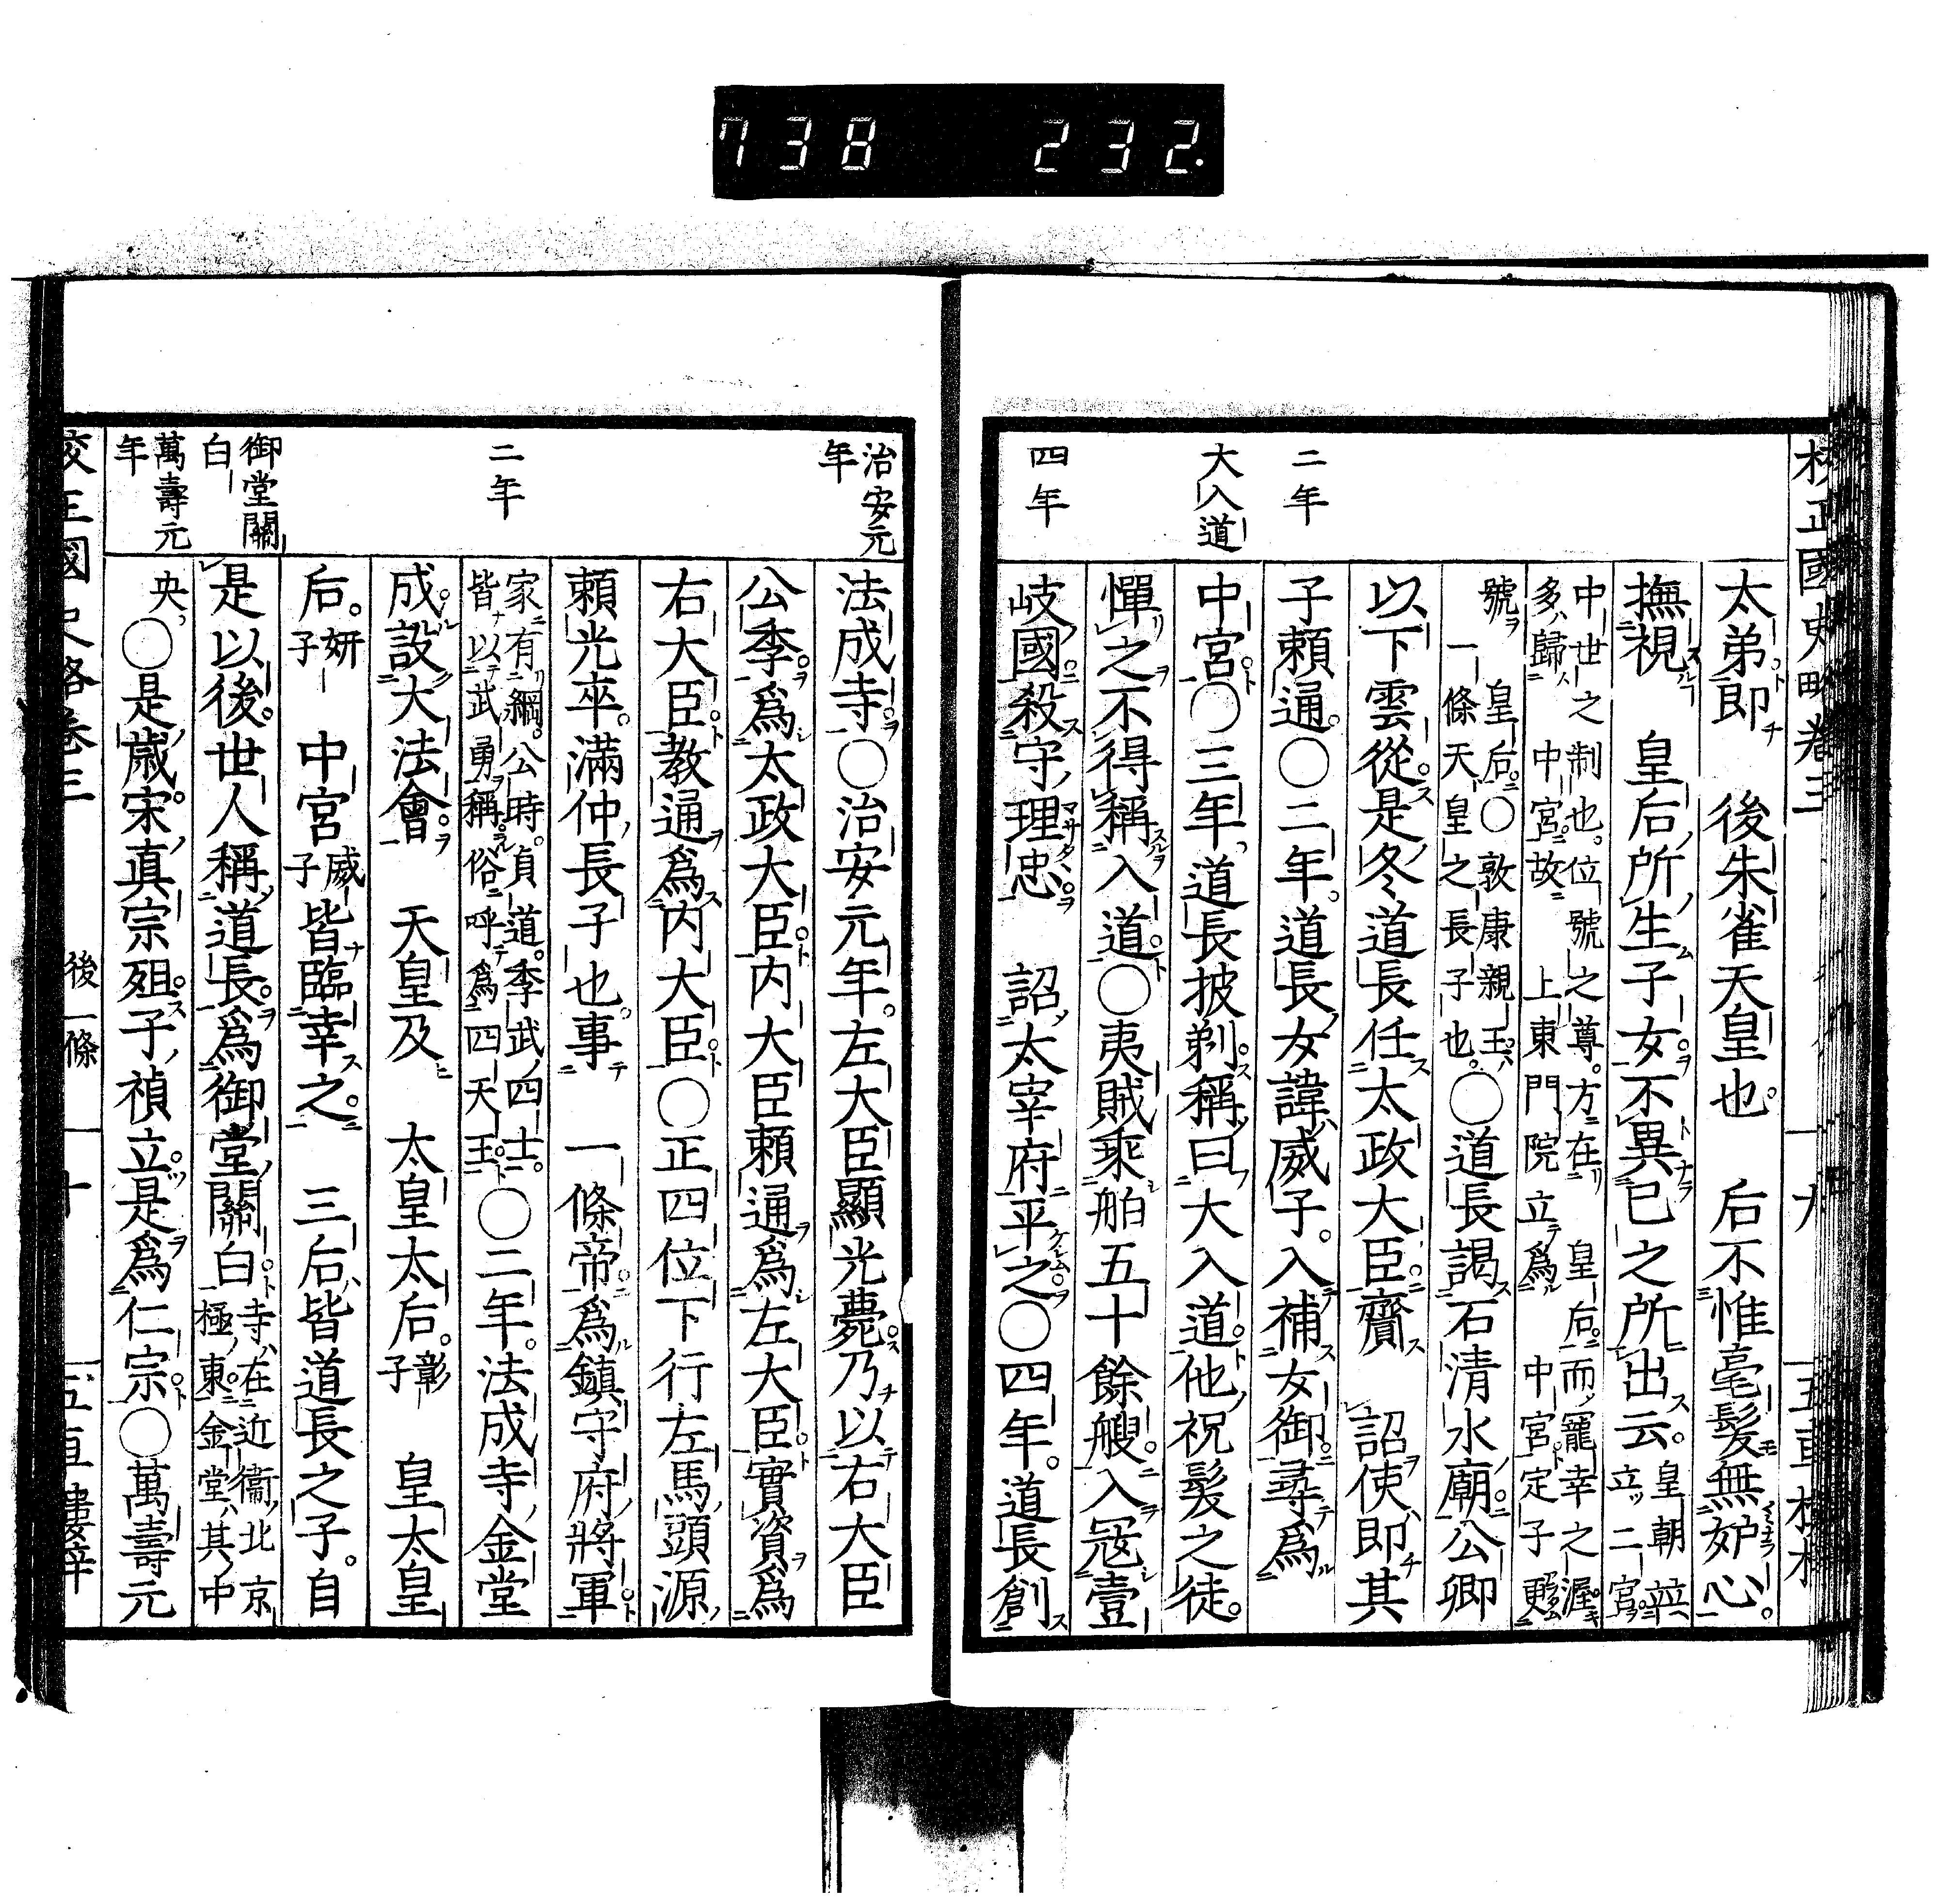 738 232.
校正國史略卷三
二年
大入道
四年
太弟即 後朱雀天皇也。 后不惟毫髮無妒心。
撫視 皇后所生子女不異已之所出云。皇朝竝立二宮。
中世之制也。位號之尊。方在 皇后。而寵幸之渥。
多歸 中宮。故 上東門院立爲 中宮。定子更
號 皇后。○敦康親王。
一條天皇之長子也。○道長謁石清水廟。公卿
以下雲從。是冬道長任太政大臣。齎 詔使即其
子賴通。○二年。道長女諱威子。入補女御。尋爲
中宮。○三年。道長披剃。稱曰大入道。他祝髮之徒。
憚之不得稱入道。○夷賊乘舶五十餘艘。入冦壹
岐國。殺守理忠。 詔太宰府平之。○四年。道長創
治安元年
二年
御堂關白
萬壽元年
法成寺。○治安元年。左大臣顯光薨。乃以右大臣
公季爲太政大臣。内大臣賴通爲左大臣。實資爲
右大臣。教通爲内大臣。○正四位下行左馬頭源
賴光卒。滿仲長子也。事 一條帝。爲鎮守府將軍。
家有綱。公時。貞道。季武四士。
皆以武勇稱。俗呼爲四天王。○二年。法成寺金堂
成。設大法會。 天皇及 太皇太后。彰子 皇太皇
后。姸子 中宮威子皆臨幸之。 三后皆道長之子。自
是以後。世人稱道長爲御堂關白。寺在近衞北京
極東。金堂其中
央。○是歳宋真宗殂。子禎立。是爲仁宗。○萬壽元
後一條